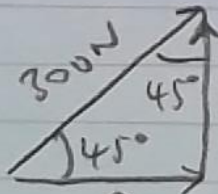 300N
45°
45°